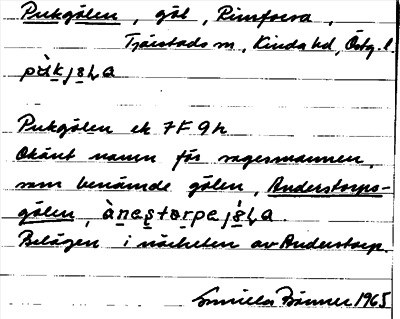 Pukgölen, göl, Rimforsa,
Tjärstads sn, Kinda hd, Östg. l.
pùkjɵ̀ɭa
Pukgölen ek 7F 9h
Okänt namn för sagesmannen,
som benämde gölen, Anderstorps-
gölen, ànəʂtɵrpəjɵ́ɭa.
Belägen i närheten av Anderstorp.
Gunilla Fönner 1965